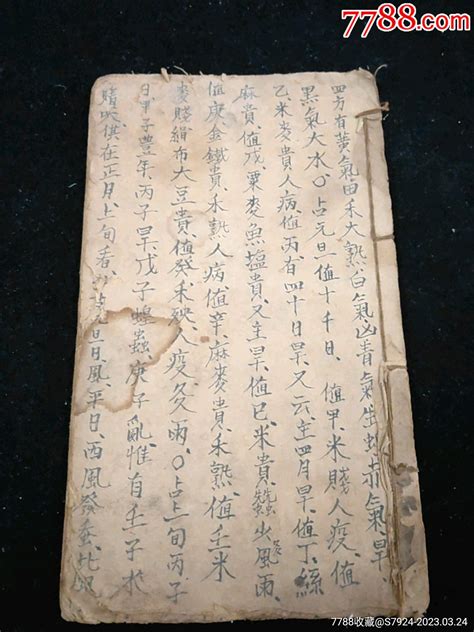 7788.com
四方有黃氣田禾大熟白氣凶青氣生蝗赤氣旱
黑氣大水〇占元旦值十干日 值甲米賤人疫值
乙米麥貴人病值丙有四十日旱又云主四月旱值丁絲
麻貴值戊粟麥魚塩貴又主旱值己米貴蠶少風雨
值庚金鐵貴禾熟人病值辛麻麥貴禾熟值壬米
麥賤絹布大豆貴值癸禾殃人疫多雨〇占上旬丙子
日甲子豐年丙子旱戊子蝗蟲庚子亂惟有壬子水
俱在正月上旬看 元旦日風平日西風發
7788收藏@S7924-2023.03.24